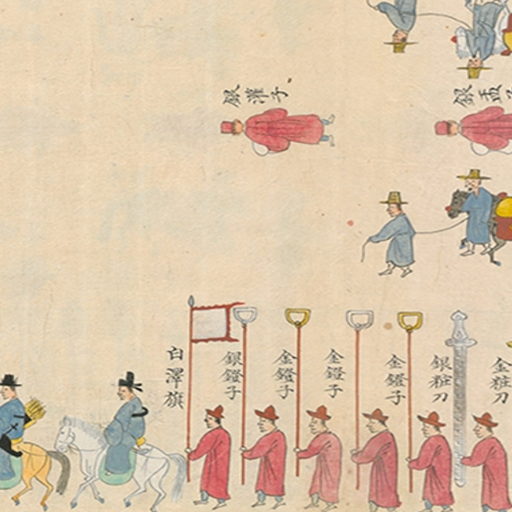 銀灌子
銀盂子
白澤旗
銀鐙子
金鐙子
金鐙子
金鐙子
銀粧刀
金粧刀